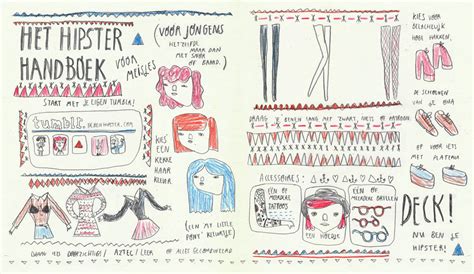 HET HIPSTER
HANDBOEK
VOOR MEISJES
(VOOR JONGENS
HETZELFDE,
MAAR DAN
MET SNOR
OF BAARD.)
START MET JE EIGEN TUMBLR!
tumblr.
KIES
EEN
KEKKE
HAAR
KLEUR
(EEN MY LITTLE
PONY KLEURTJE)
DRAAG IETS DOORZICHTIGS / AZTEC / LEER
OF ALLES GECOMBINEERD
DRAAG JE BENEN LANG MET ZWART, NIETS OF PATROON
KIES VOOR
BELACHELIJK
HOGE HAKKEN,
DE SCHOENEN
VAN JE OMA
OF IETS
MET PLATEAU
ACCESSOIRES:
EEN OF
MEERDERE
TATTOOS
EEN HOEDJE
EEN OF
MEERDERE BRILLEN
DECK!
NU BEN JE
HIPSTER!